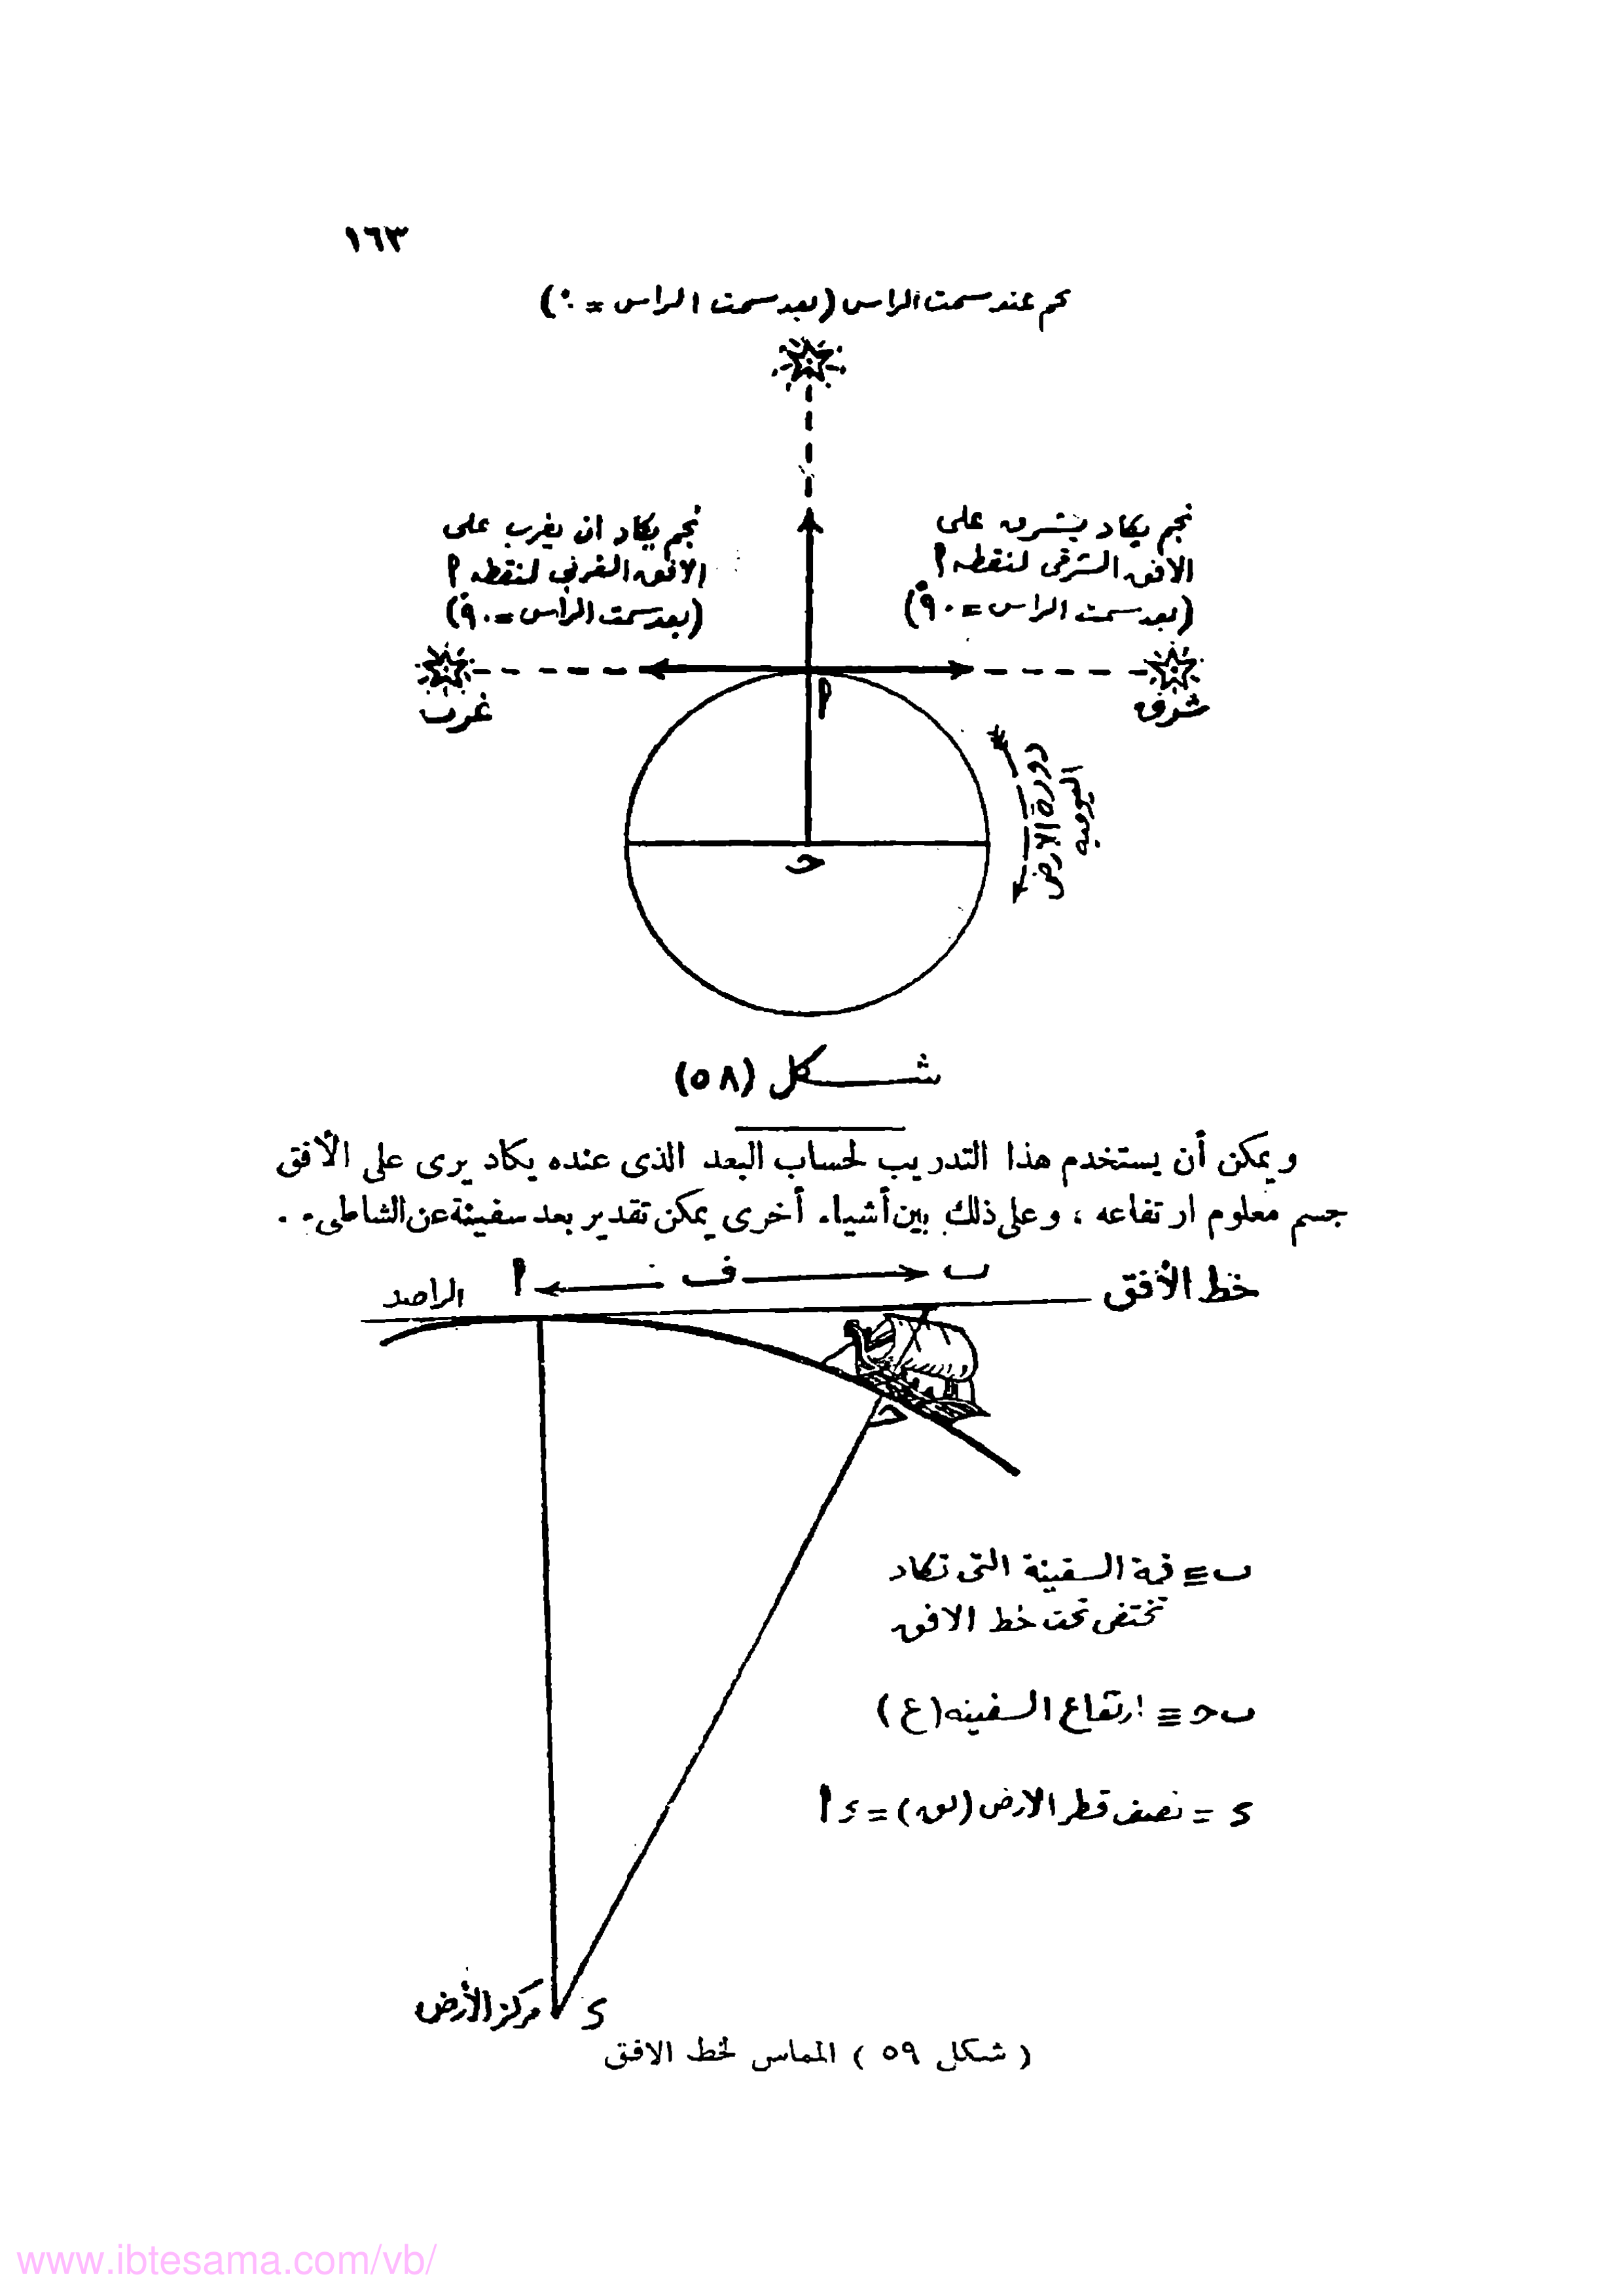 ١٦٣
نجم عند سمت الراس (بعد سمت الراس = ٠°)
نجم يكاد يشرق على
الافق الشرقى لنقطه أ
(بعد سمت الراس = ٩٠°)
نجم يكاد ان يغرب على
الافق الغربى لنقطه أ
(بعد سمت الرأس = ٩٠°)
شرق
غرب
أ
دورة الارض
اليوميه
حـ
شكل (٥٨)
ويمكن أن يستخدم هذا التدريب لحساب البعد الذى عنده يكاد يرى على الأفق
جسم معلوم ارتفاعه ، وعلى ذلك بين أشياء أخرى يمكن تقدير بعد سفينة عن الشاطىء .
خط الأفق
ب ف أ
الراصد
حـ
ب ≡ قمة السفينة التى تكاد
تختفى تحت خط الافق
ب حـ ≡ ارتفاع السفينه (ع)
ء = نصف قطر الارض (نق) = ء أ
ء
مركز الأرض
( شكل ٥٩ ) المماس لخط الافق
www.ibtesama.com/vb/